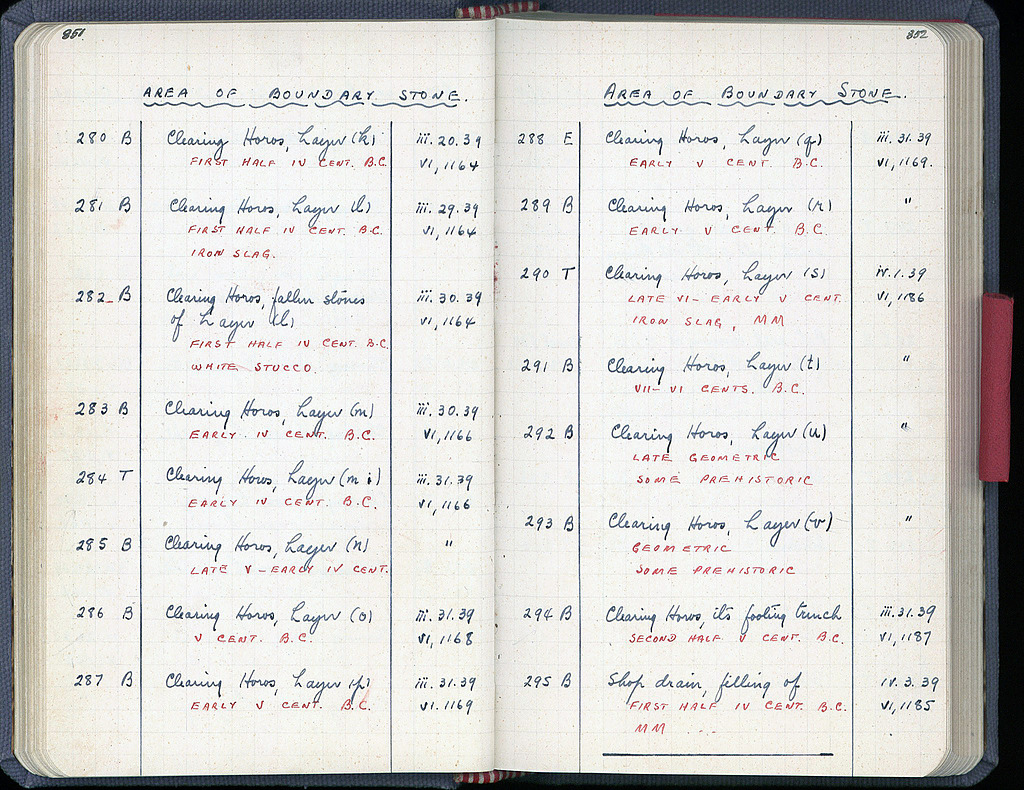 351
AREA OF BOUNDARY STONE.
280 B Clearing Horos, Layer (k) iii. 20.39
FIRST HALF IV CENT. B.C. VI, 1164
281 B Clearing Horos, Layer (l) iii. 29.39
FIRST HALF IV CENT. B.C. VI, 1164
IRON SLAG.
282 B Clearing Horos, fallen stones iii. 30.39
of Layer (l) VI, 1164
FIRST HALF IV CENT. B.C.
WHITE STUCCO.
283 B Clearing Horos, Layer (m) iii. 30.39
EARLY IV CENT. B.C. VI, 1166
284 T Clearing Horos, Layer (m i) iii. 31.39
EARLY IV CENT. B.C. VI, 1166
285 B Clearing Horos, Layer (n) "
LATE V - EARLY IV CENT.
286 B Clearing Horos, Layer (o) iii. 31.39
V CENT. B.C. VI, 1168
287 B Clearing Horos, Layer (p) iii. 31.39
EARLY V CENT. B.C. VI. 1169
352
AREA OF BOUNDARY STONE.
288 E Clearing Horos, Layer (q) iii. 31.39
EARLY V CENT. B.C. VI, 1169.
289 B Clearing Horos, Layer (r) "
EARLY V CENT. B.C.
290 T Clearing Horos, Layer (s) iv. 1.39
LATE VI - EARLY V CENT. VI, 1186
IRON SLAG, MM
291 B Clearing Horos, Layer (t) "
VII - VI CENTS. B.C.
292 B Clearing Horos, Layer (u) "
LATE GEOMETRIC
SOME PREHISTORIC
293 B Clearing Horos, Layer (v) "
GEOMETRIC
SOME PREHISTORIC
294 B Clearing Horos, its footing trench iii. 31.39
SECOND HALF V CENT. B.C. VI, 1187
295 B Shop drain, filling of IV. 3. 39
FIRST HALF IV CENT. B.C. VI, 1185
MM ...